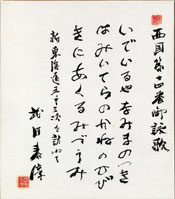 西国第十四番御詠歌
いでいるやなみまのつき
をみいてらのかねのひび
きにあくるみづうみ
新東海道五十三次を訪ねて
武田